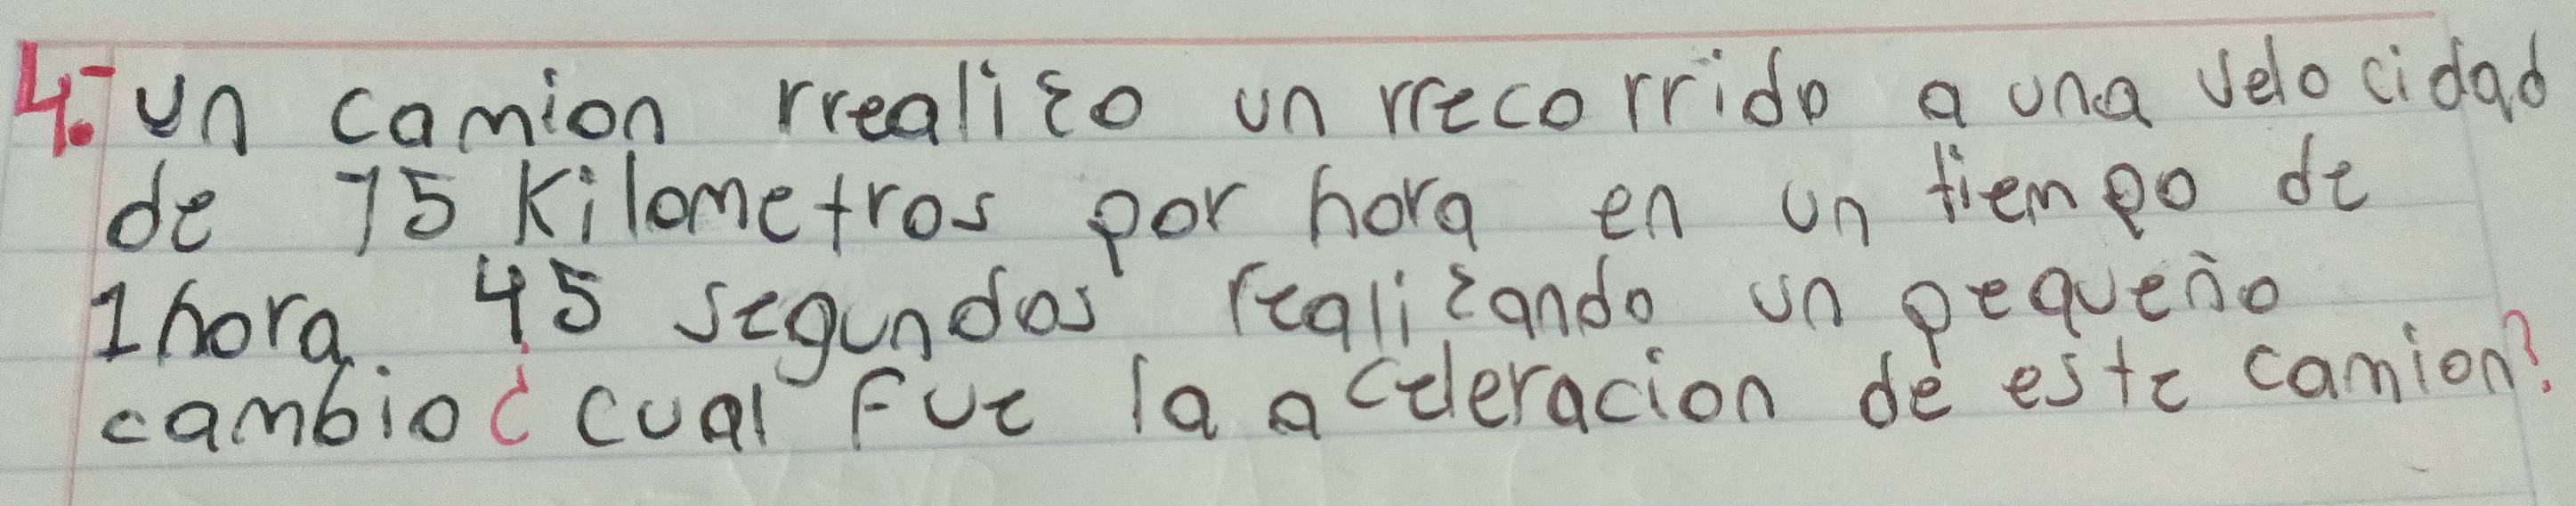 4.- Un camion rrealizo un rrecorrido a una velocidad
de 75 Kilometros por hora en un tiempo de
1hora 45 segundos realizando un pequeño
cambio ¿cual fue la aceleracion de este camion?